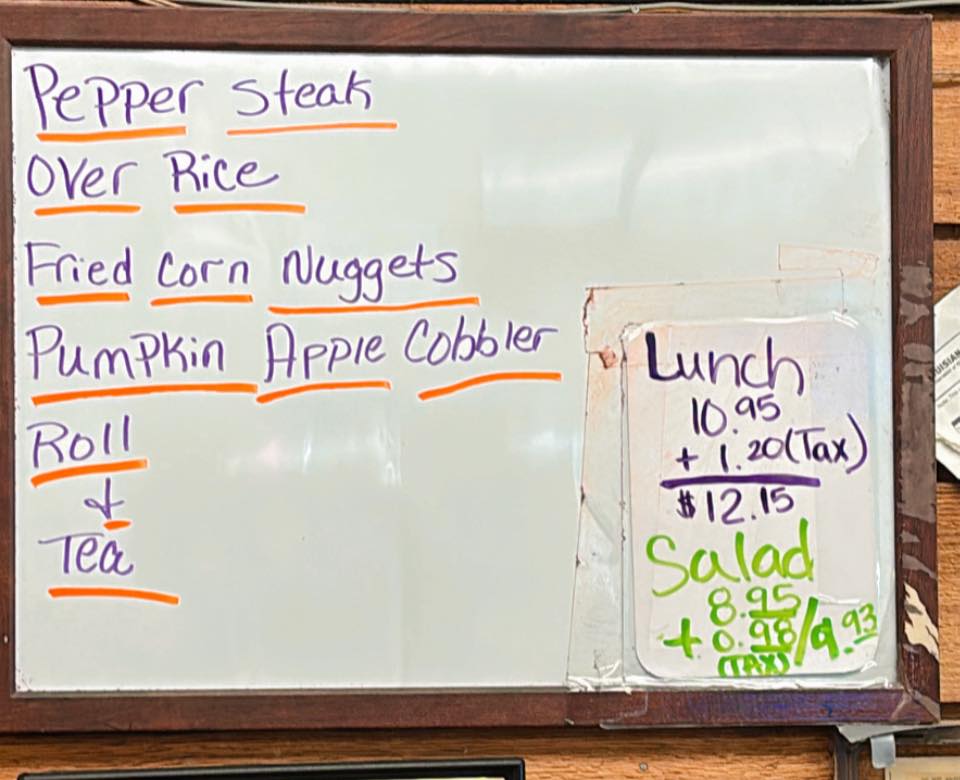 Pepper Steak
Over Rice
Fried Corn Nuggets
Pumpkin Apple Cobbler
Roll
&
Tea
Lunch
10.95
+ 1.20 (Tax)
$12.15
Salad
8.95
+ 0.98/9.93
(TAX)